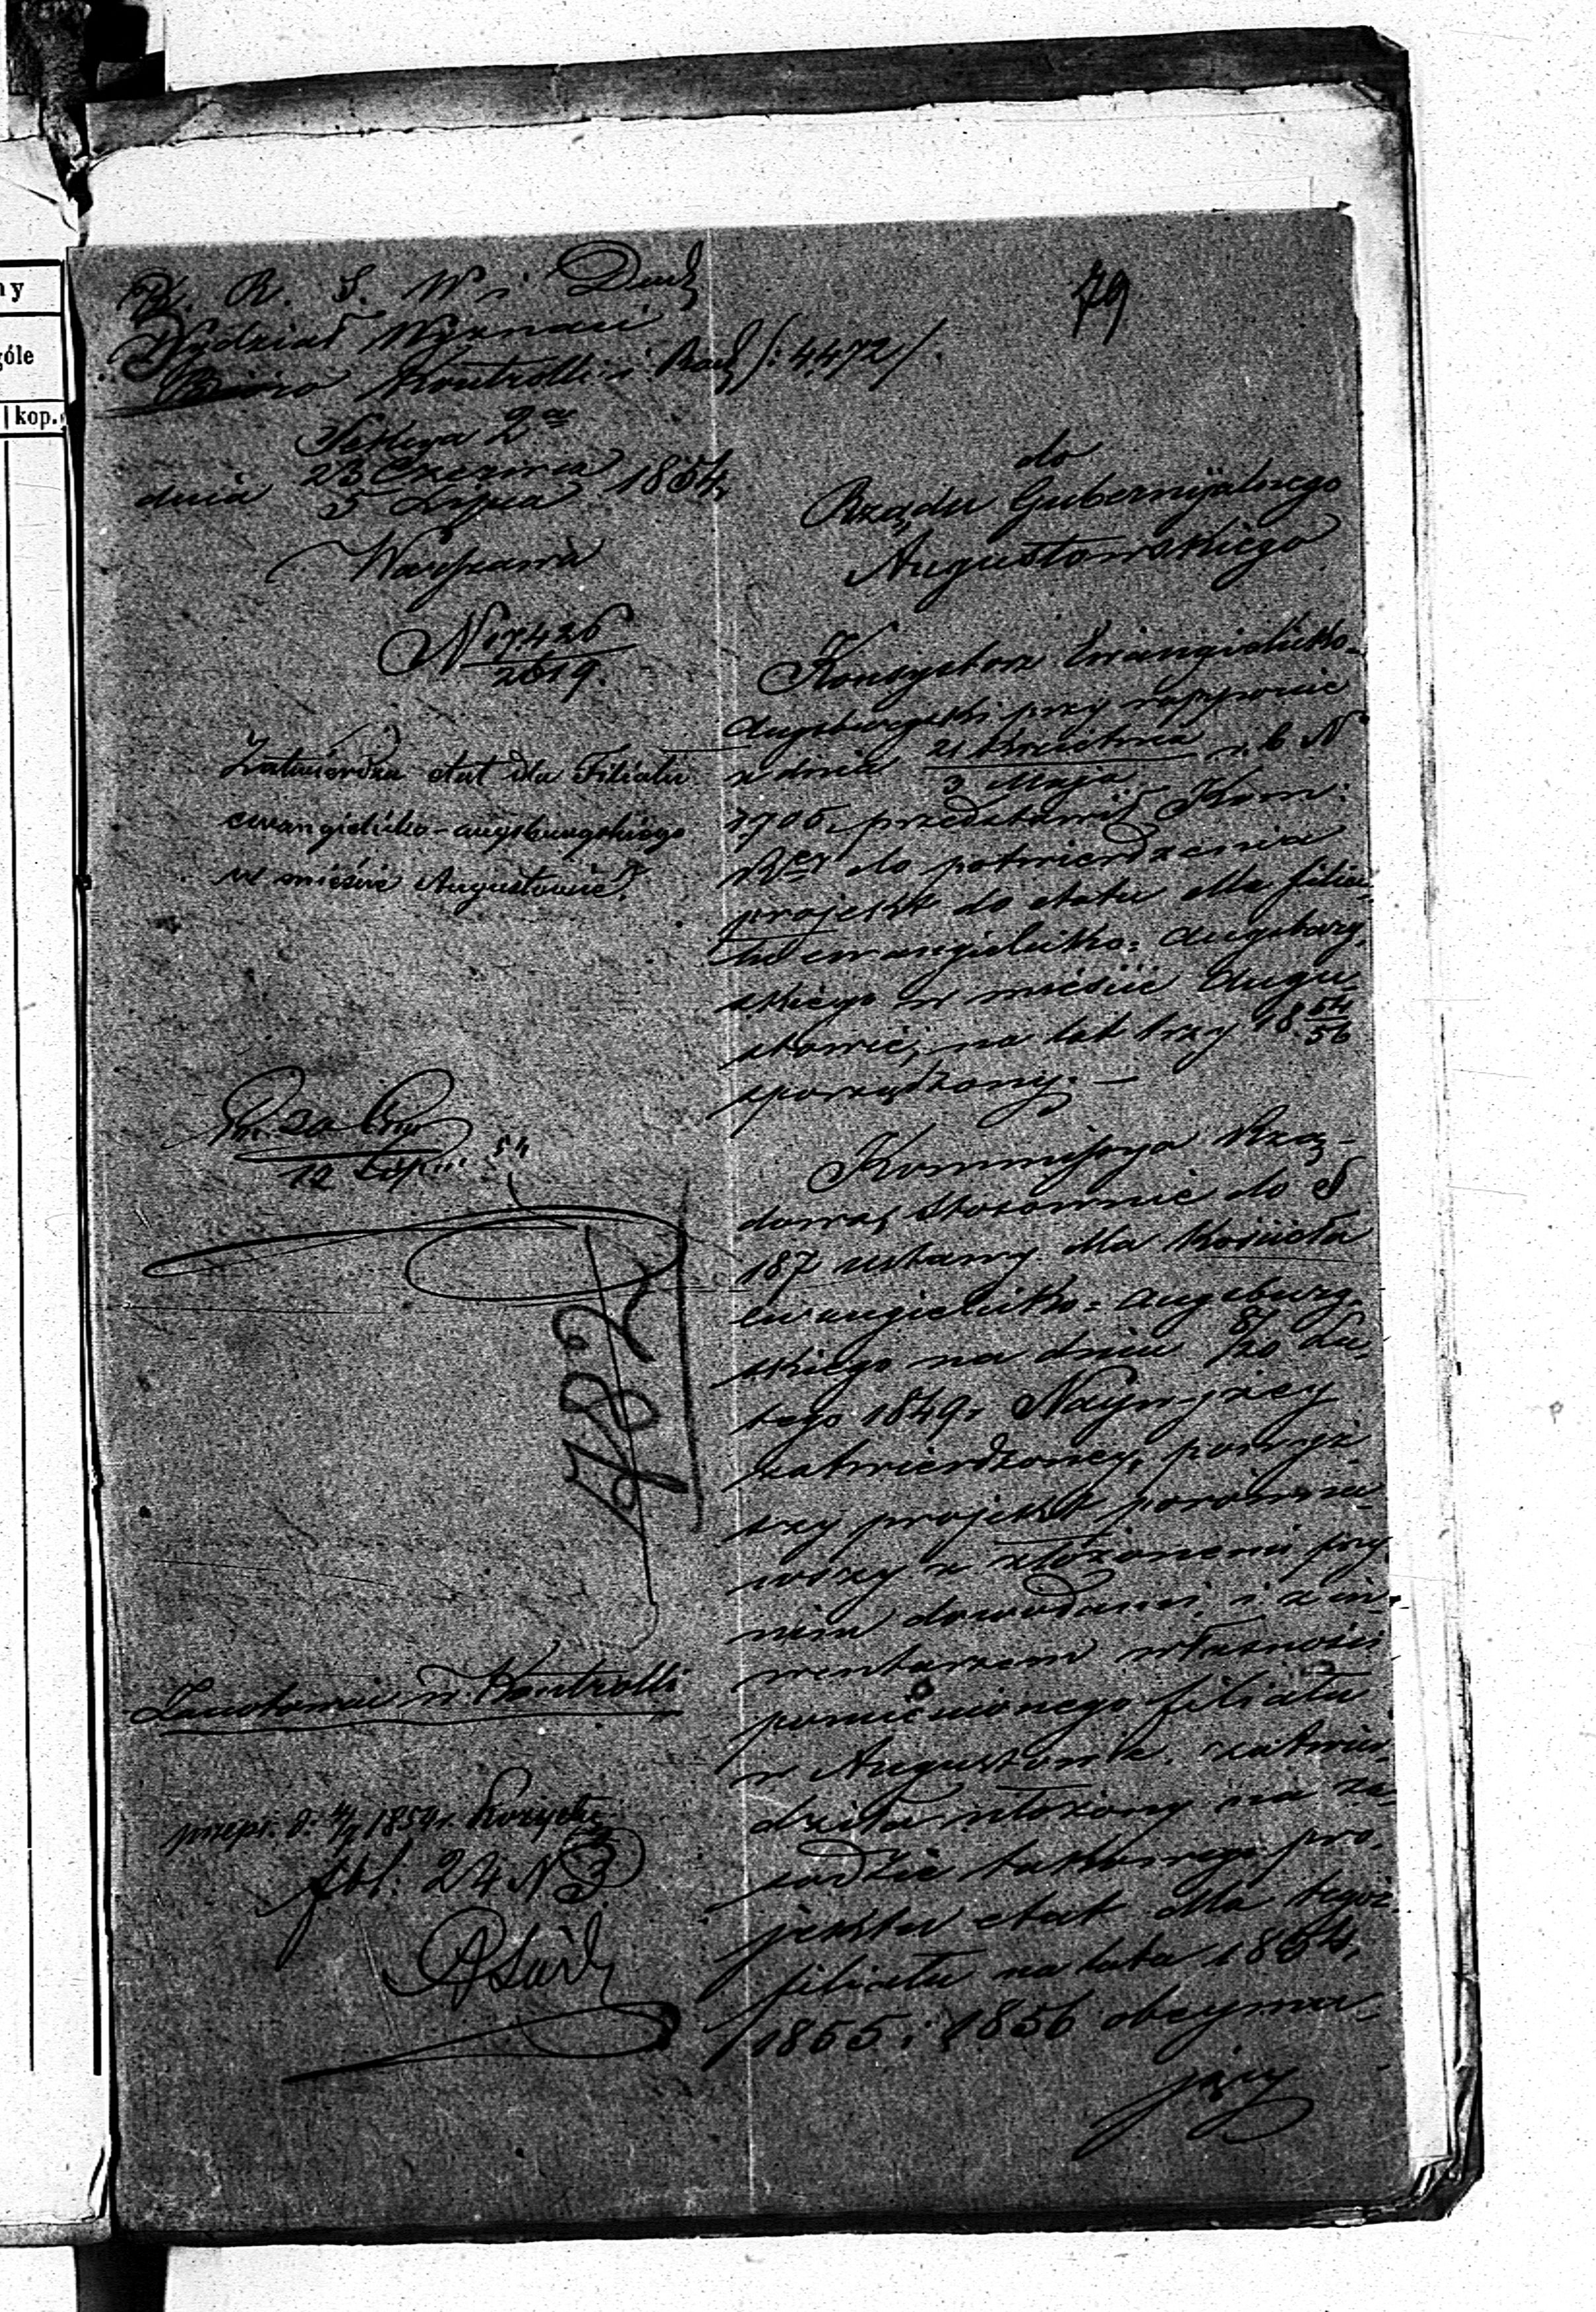 ny
góle
kop.
79
K. R. S. W i Duch
Wydział Wyznań
Biuro Kontrolli i Rach /: 4472/.
Sekcya 2ga
dnia 23 Czerwca 1854
5 Lipca
Warszawa
N 17426
2619.
Zatwierdza etat dla Filiału
ewangielicko-augsburgskiego
w mieście Augustowie.
12 Lip 54
782
Zanotowano w Kontrolli
przepr. d. 1854r.
fol: 24 N 3
do
Rządu Gubernijalnego
Augustowskiego
Konsystorz Ewangielicko-
Augsburgski przy rapporcie
z dnia 21 Kwietnia r. b N
3 Maja
1706, przedstawił Kom:
Rzej do potwierdzenia
projekt do etatu dla filia-
łu ewangielicko-Augsburg-
skiego w mieście Augu-
stowie, na lat trzy 1854
56
sporządzony.—
Kommissya Rzą-
dowa, stosownie do §
187 ustawy dla Kościoła
ewangielicko-augsburg-
skiego na dniu 8/20 Lu-
tego 1849r Najwyżey
zatwierdzoney, powyż-
szy projekt porówna-
wszy z złożonemi przy
nim dowodami i z in-
wentarzem własności
pomienionego filiału
w Augustowie, zatwier-
dziła ułożony na za-
sadzie takowego pro-
jektu etat dla tegoż
filiału na lata 1854,
1855 i 1856 obeymu-
jący